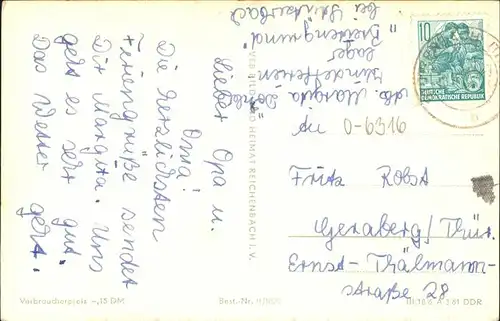 Lieber Opa u.
Oma!
Die herzlichsten
Feriengrüße sendet
Dir Margita. Uns
geht es sehr gut.
Das Wetter geht.
Abs. Margita
Kinderferien
lager
"Breitengrund"
bei
VEB BILD UND HEIMAT REICHENBACH I. V.
10
DEUTSCHE
DEMOKRATISCHE REPUBLIK
An 0-6316
Fritz Robst
Geraberg/Thür.
Ernst-Thälmann-
straße 28
Verbraucherpreis -,15 DM
Best.-Nr.
III/18/6 A 3/61 DDR